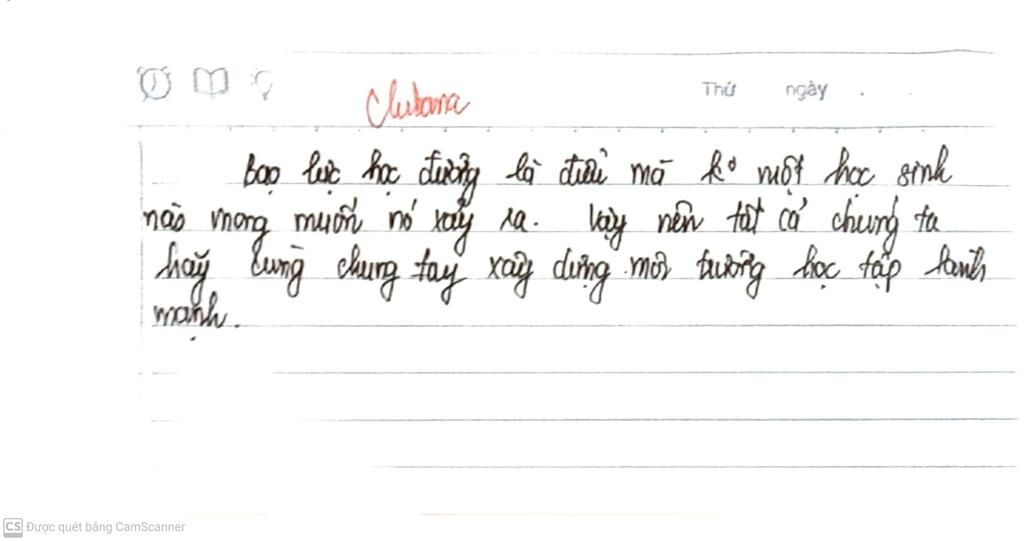 Thứ ngày
Clubona
Bạo lực học đường là điều mà ko một học sinh
nào mong muốn nó xảy ra. Vậy nên tất cả chúng ta
hãy cùng chung tay xây dựng môi trường học tập lành
mạnh.
CS Được quét bằng CamScanner